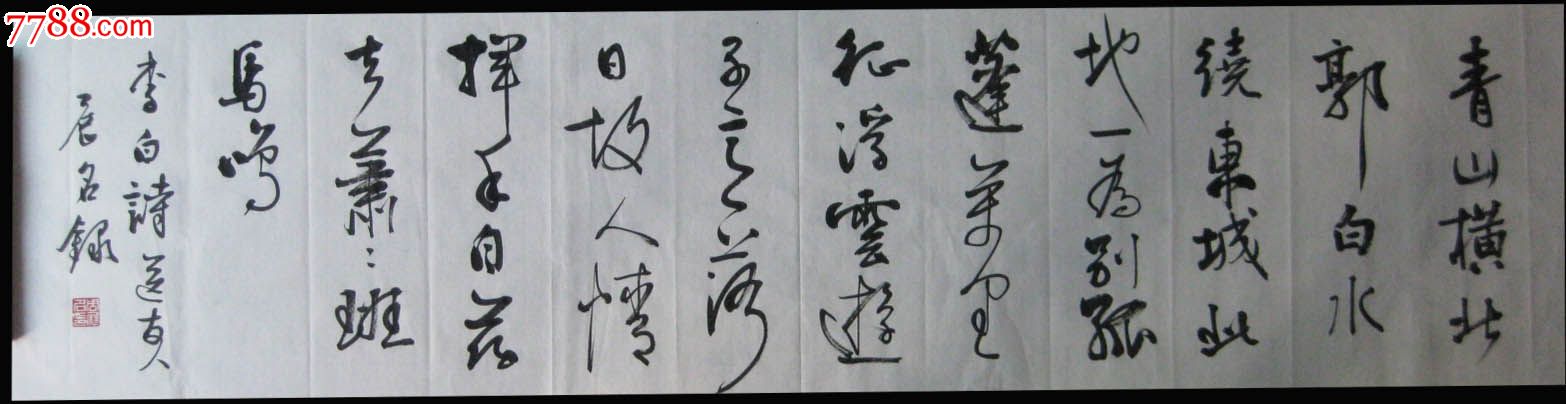 7788.com
青山橫北
郭白水
繞東城此
地一為別孤
蓬萬里
征浮雲遊
子意落
日故人情
揮手自茲
去蕭々班
馬鳴
李白詩送友人
辰名錄